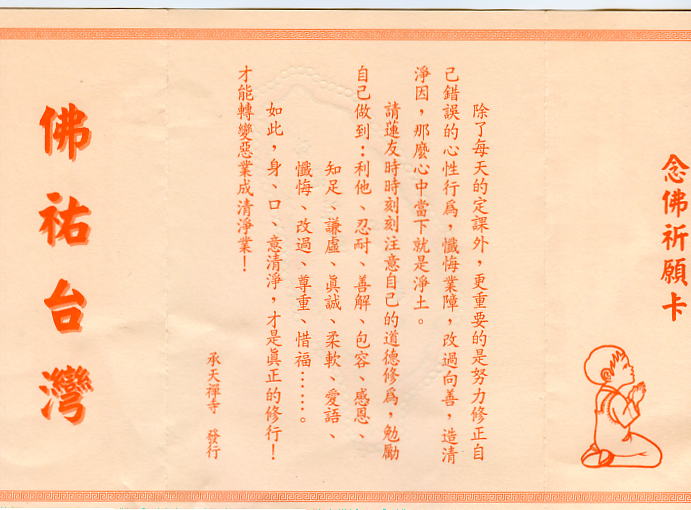 念佛祈願卡
除了每天的定課外，更重要的是努力修正自
己錯誤的心性行為，懺悔業障，改過向善，造清
淨因，那麼心中當下就是淨土。
請蓮友時時刻刻注意自己的道德修為，勉勵
自己做到：利他、忍耐、善解、包容、感恩、
知足、謙虛、眞誠、柔軟、愛語、
懺悔、改過、尊重、惜福……。
如此，身、口、意清淨，才是眞正的修行！
才能轉變惡業成清淨業！
承天禪寺 發行
佛祐台灣